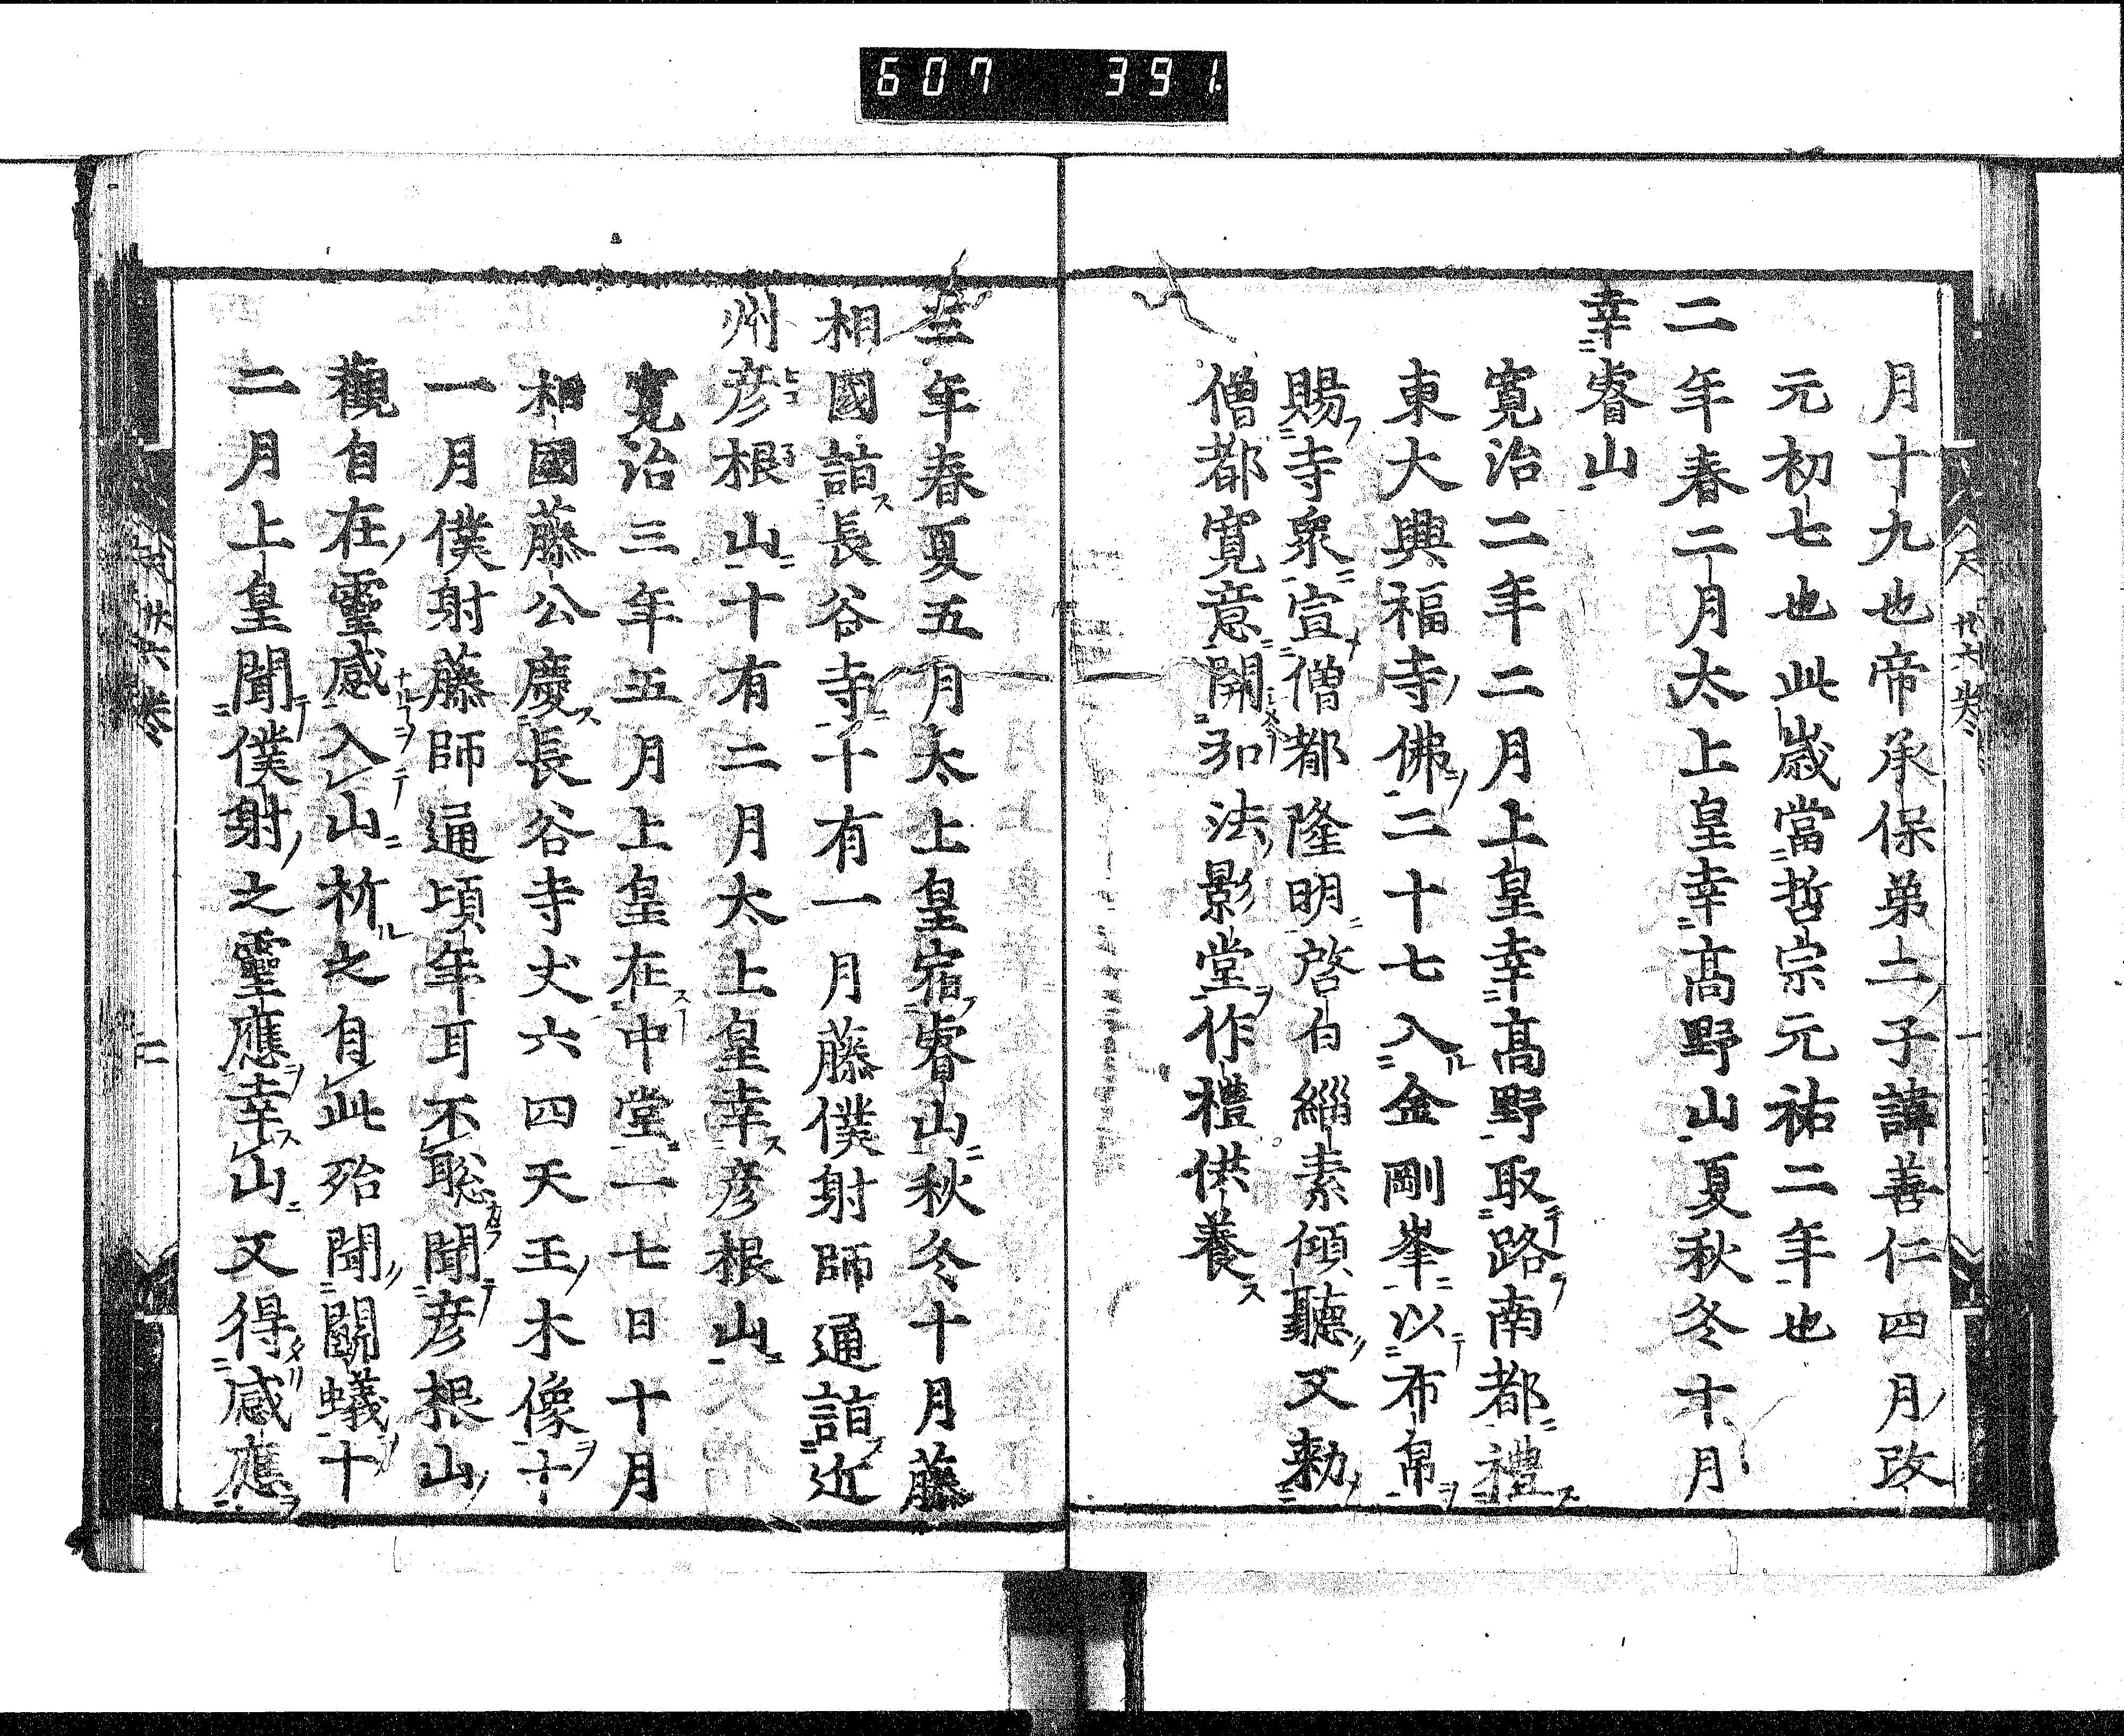 607 391
月十九也帝承保弟二子諱善仁四月改
元初七也此歳當哲宗元祐二年也
二年春二月太上皇幸髙野山夏秋冬十月
幸睿山
寛治二年二月上皇幸髙野取路南都禮
東大興福寺佛二十七入金剛峯以布帛
賜寺衆宣僧都隆明啓白緇素傾聽又勅
僧都寛意開弘法影堂作禮供養
三年春夏五月太上皇宿睿山秋冬十月藤
相國詣長谷寺十有一月藤僕射師通詣近
州彦根山十有二月太上皇幸彦根山
寛治三年五月上皇在中堂一七日十月
相國藤公慶長谷寺丈六四天王木像十
一月僕射藤師通頃年耳不聡聞彦根山
觀自在靈感入山祈之自此殆聞闘蟻十
二月上皇聞僕射之靈應幸山又得感應